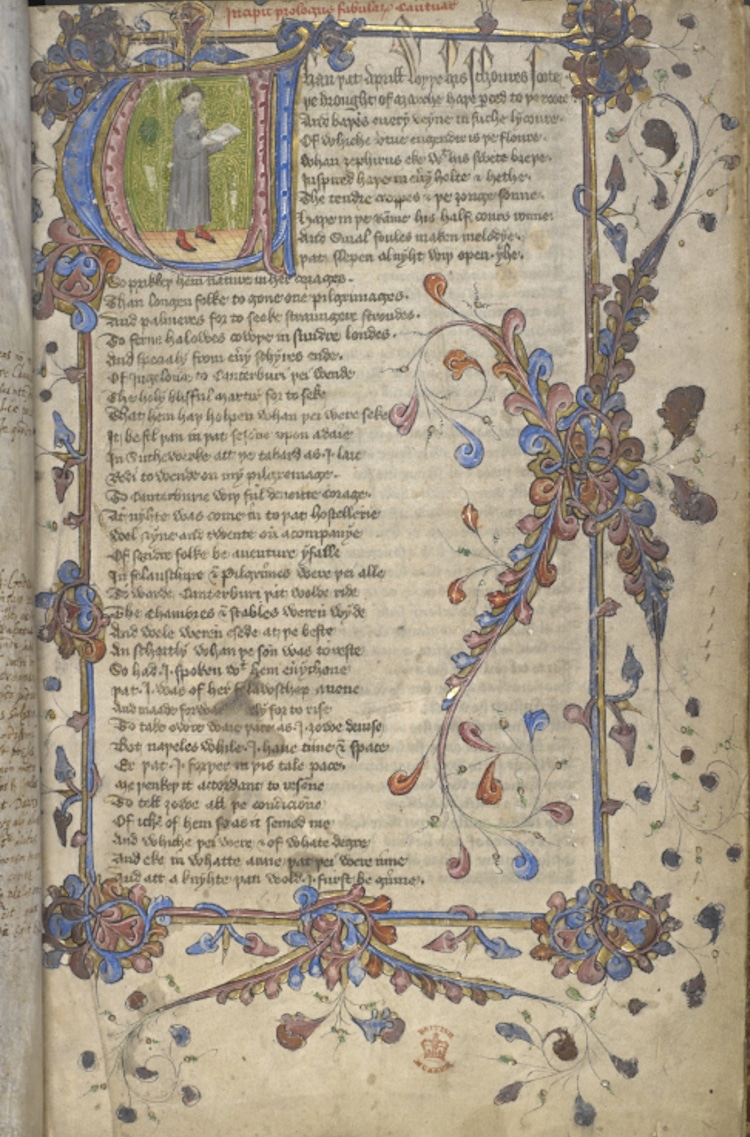 Incipit prologus fabularum Cantuar
Whan þat Aprill wyþ his schoures soote
þe drought of Marche haþ perced to þe roote
And baþed euery veyne in suche lycoure
Of whiche vertue engendred is þe floure
Whan zephirus eke wt his swete breþe
Inspired haþ in euy holte & hethe
The tendre croppes & þe ȝonge sonne
Haþe in þe Rame his half cours ronne
And smal foules maken melodye
þat slepen al nyht wiþ open yhe
So prikkeþ hem nature in her corages
Than longen folke to gone on pilgrimages
And palmeres for to seeke straungere strondes
To ferne halowes cowþe in sundre londes
And specialy from euy schyres ende
Of Ingelond to Canterburi þei wende
The holy blisful martir for to seke
That hem haþ holpen whan þei were seke
It befel þan in þat sesone vpon a daie
In Suthewerke att þe tabard as I laie
Redi to wende on my pilgrimage
To Canterburie wiþ ful deuoute corage
At nyhte was come in to þat hostellerie
Wel nyne and twente on a companye
Of sondre folke be auenture yfalle
In felauschipe & Pilgrimes were þei alle
To warde Canterburi þat wolde ride
The Chambres & stables weren wyde
And wele weren esede at þe beste
An schortly whan þe son was to reste
So had I spoken wt hem euychone
þat I was of her felawschep anone
And made forwar dly for to rise
To take owre waie þere as I ȝowe deuise
But naþeles while I haue time & space
Er þat I forþer in þis tale pace
Me þenkeþ it accordant to resone
To tell ȝowe all þe condicione
Of iche of hem so as it semed me
And whiche þei were & of whate degre
And eke in whatte araie þat þei were inne
And att a knyhte þan wold I furst be ginne
BRITISH MUSEUM